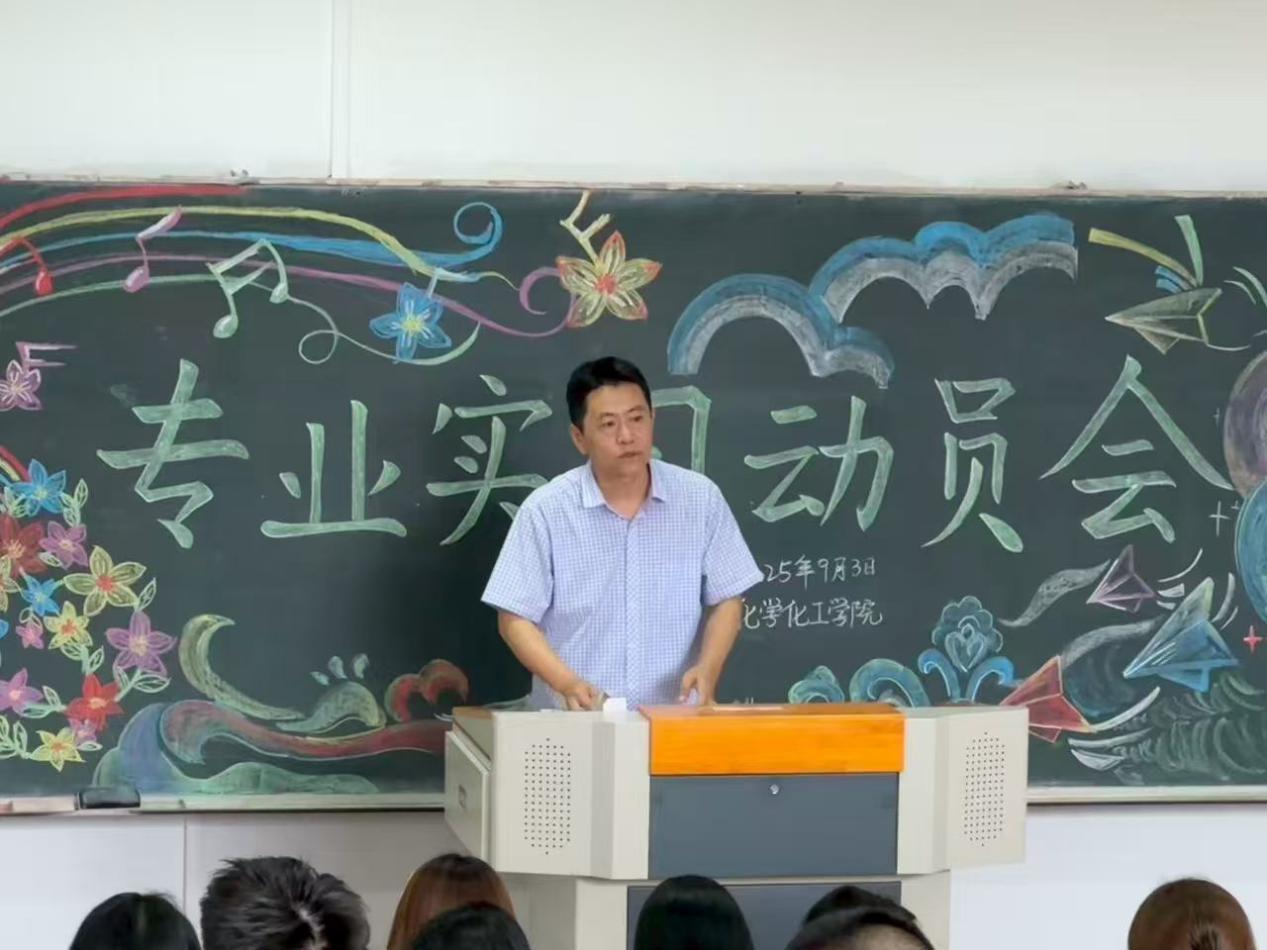 专业实习动员会
25年9月3日
化学化工学院